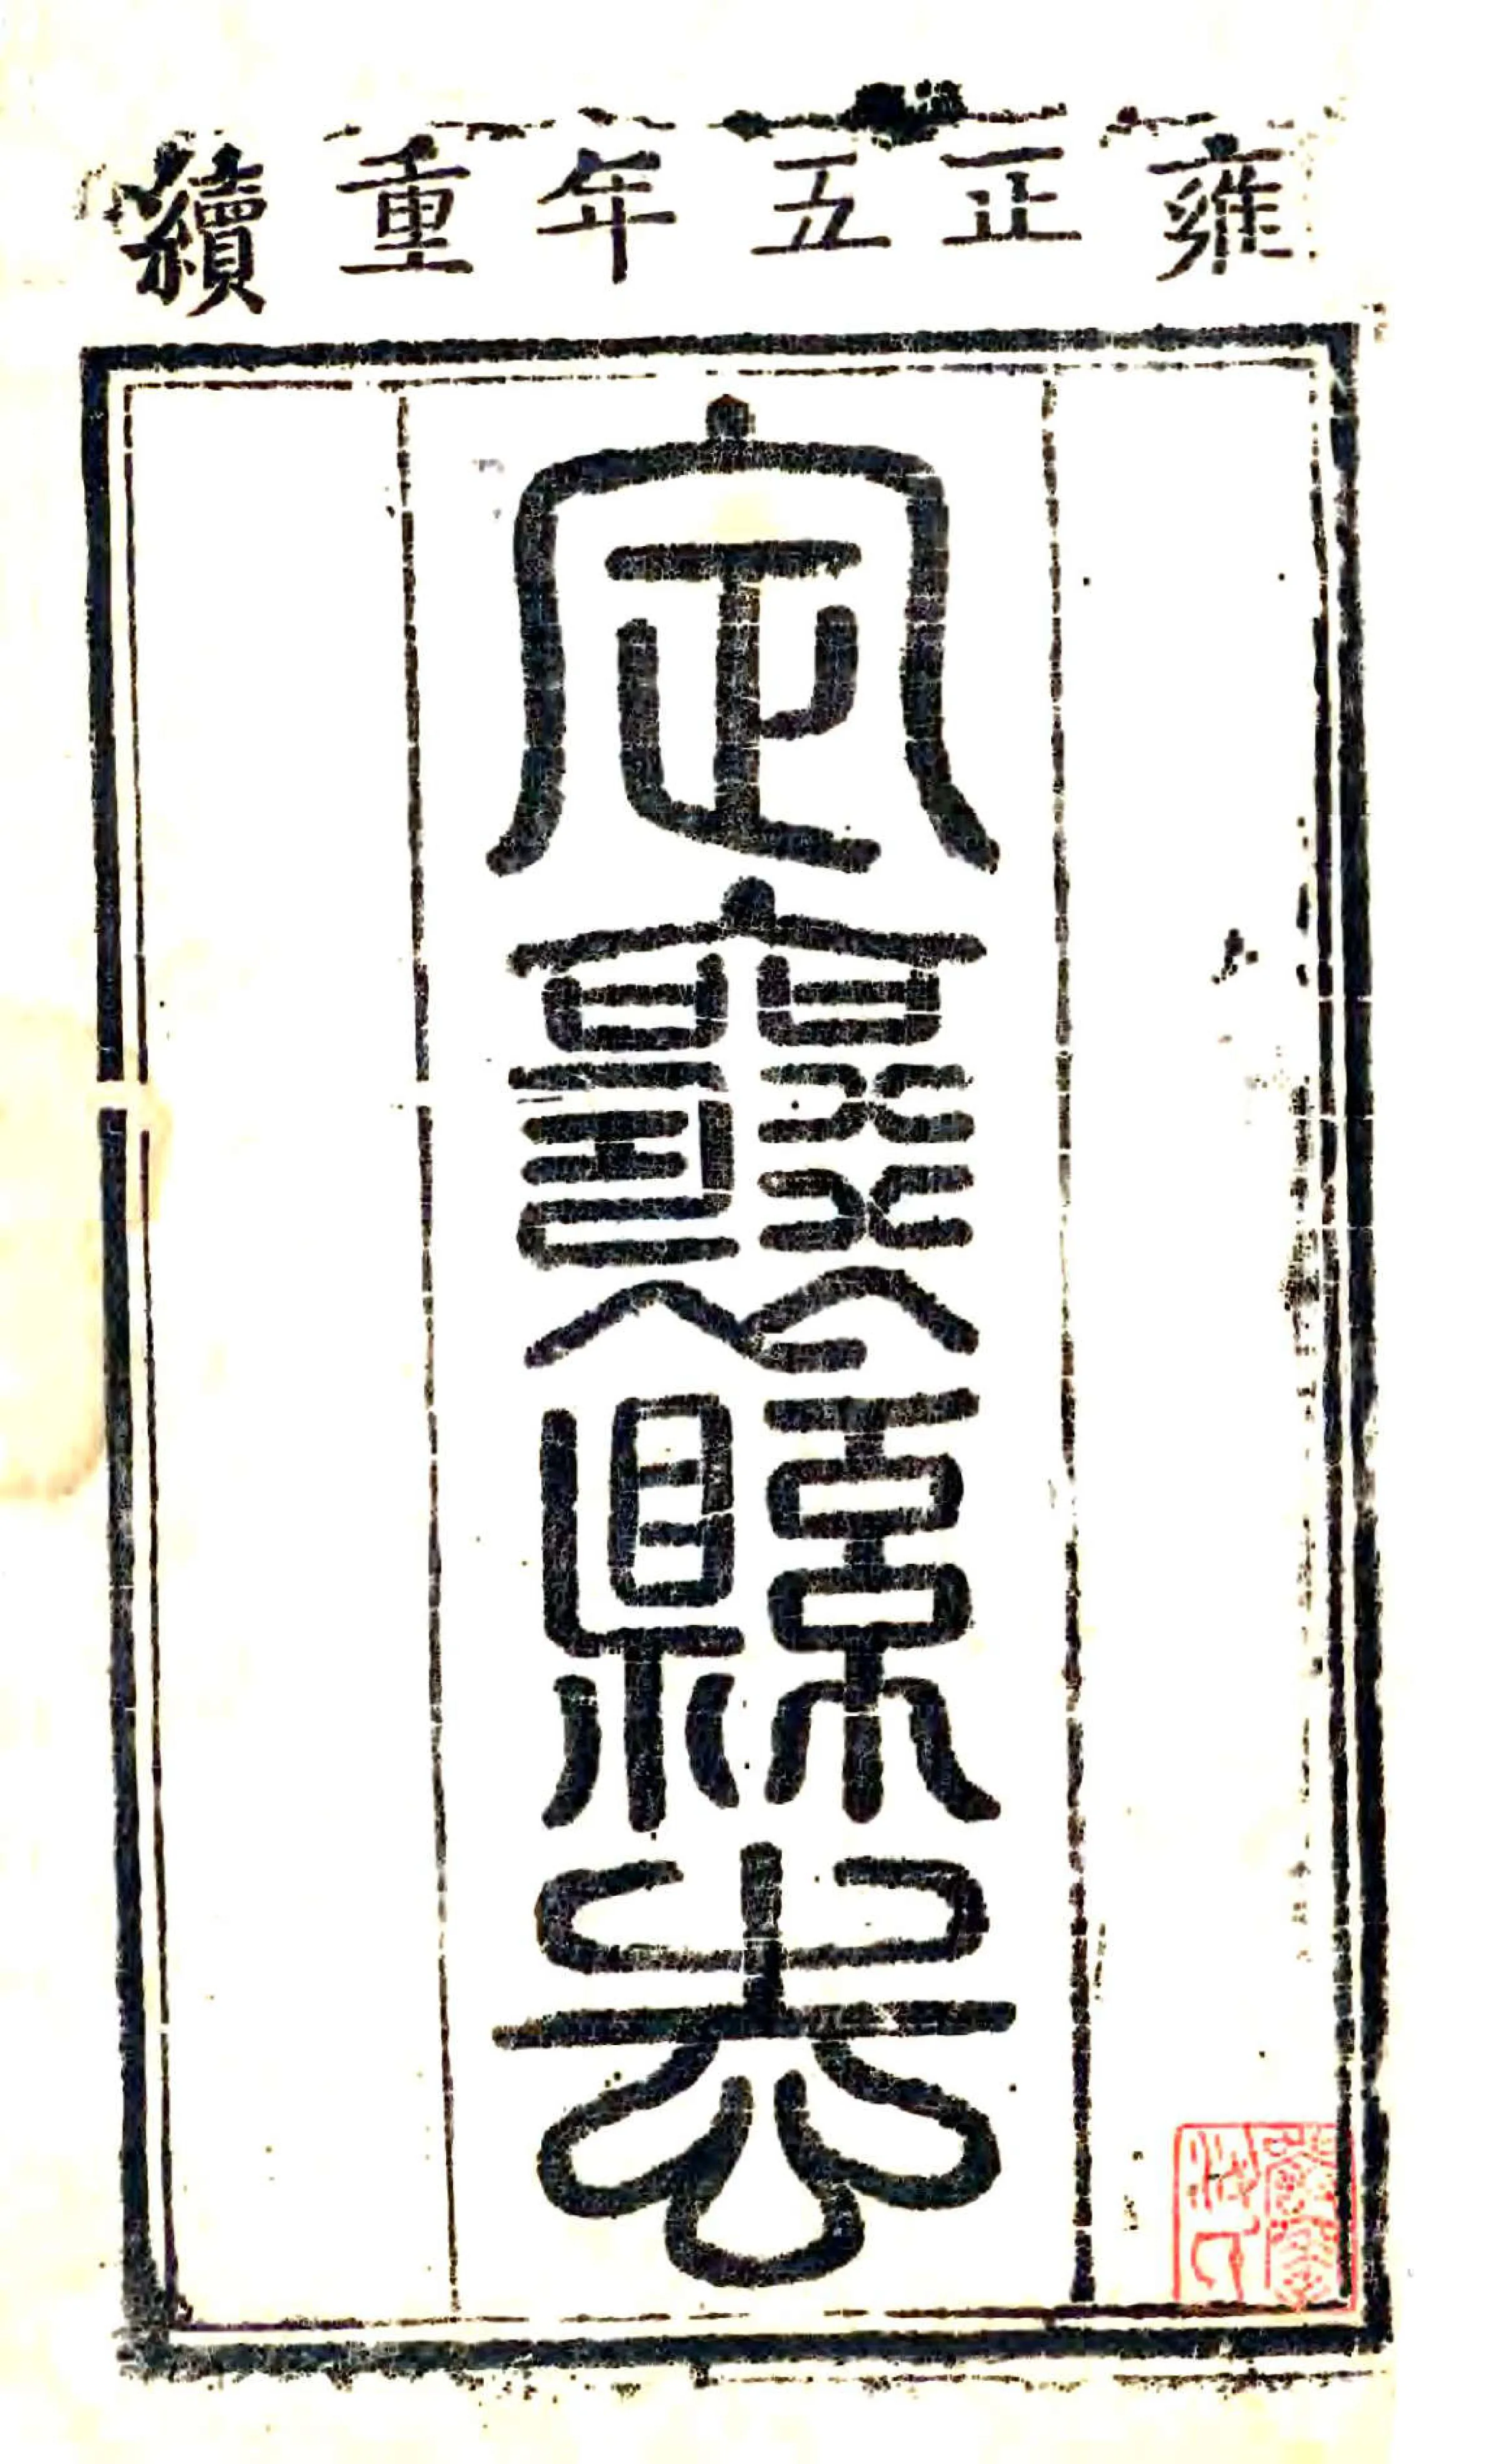 雍正五年重續
定襄縣志